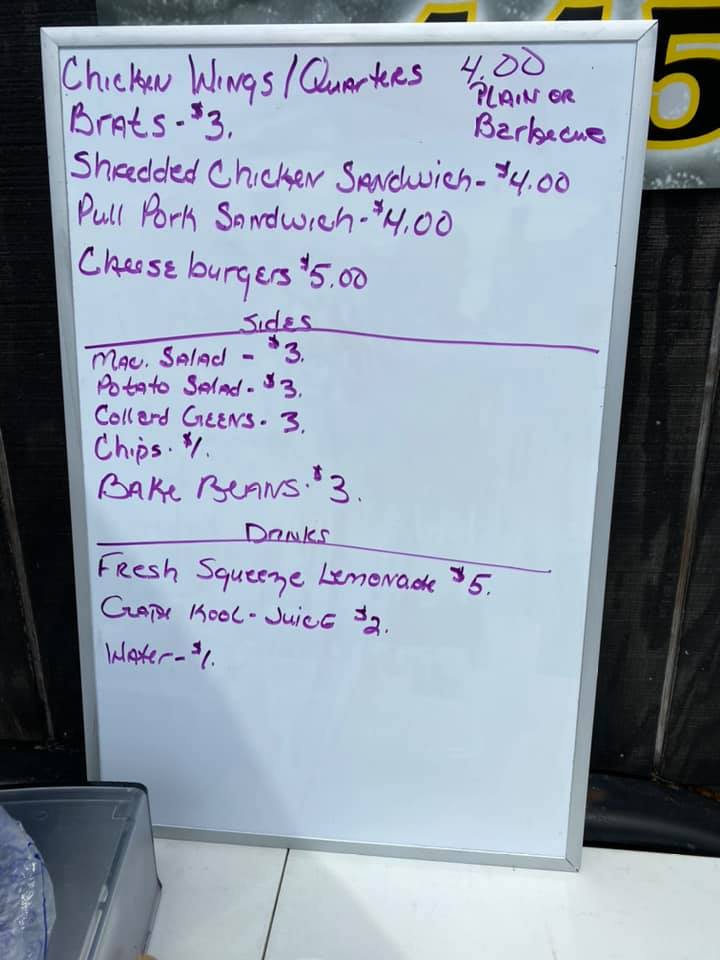 Chicken Wings/Quarters 4.00
PLAIN OR
Barbecue
Brats - $3.
Shredded Chicken Sandwich - $4.00
Pull Pork Sandwich - $4.00
Cheese burgers $5.00
Sides
Mac. Salad - $3.
Potato Salad - $3.
Collard Geens - 3.
Chips - $1.
Bake Beans - $3.
Drinks
Fresh Squeeze Lemonade $5.
Grape Kool-Juice $2.
Water - $1.